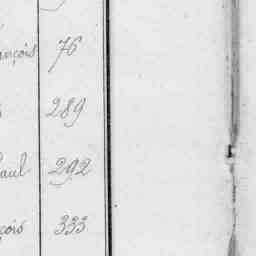 ançois 76
289
aul 292
çois 333